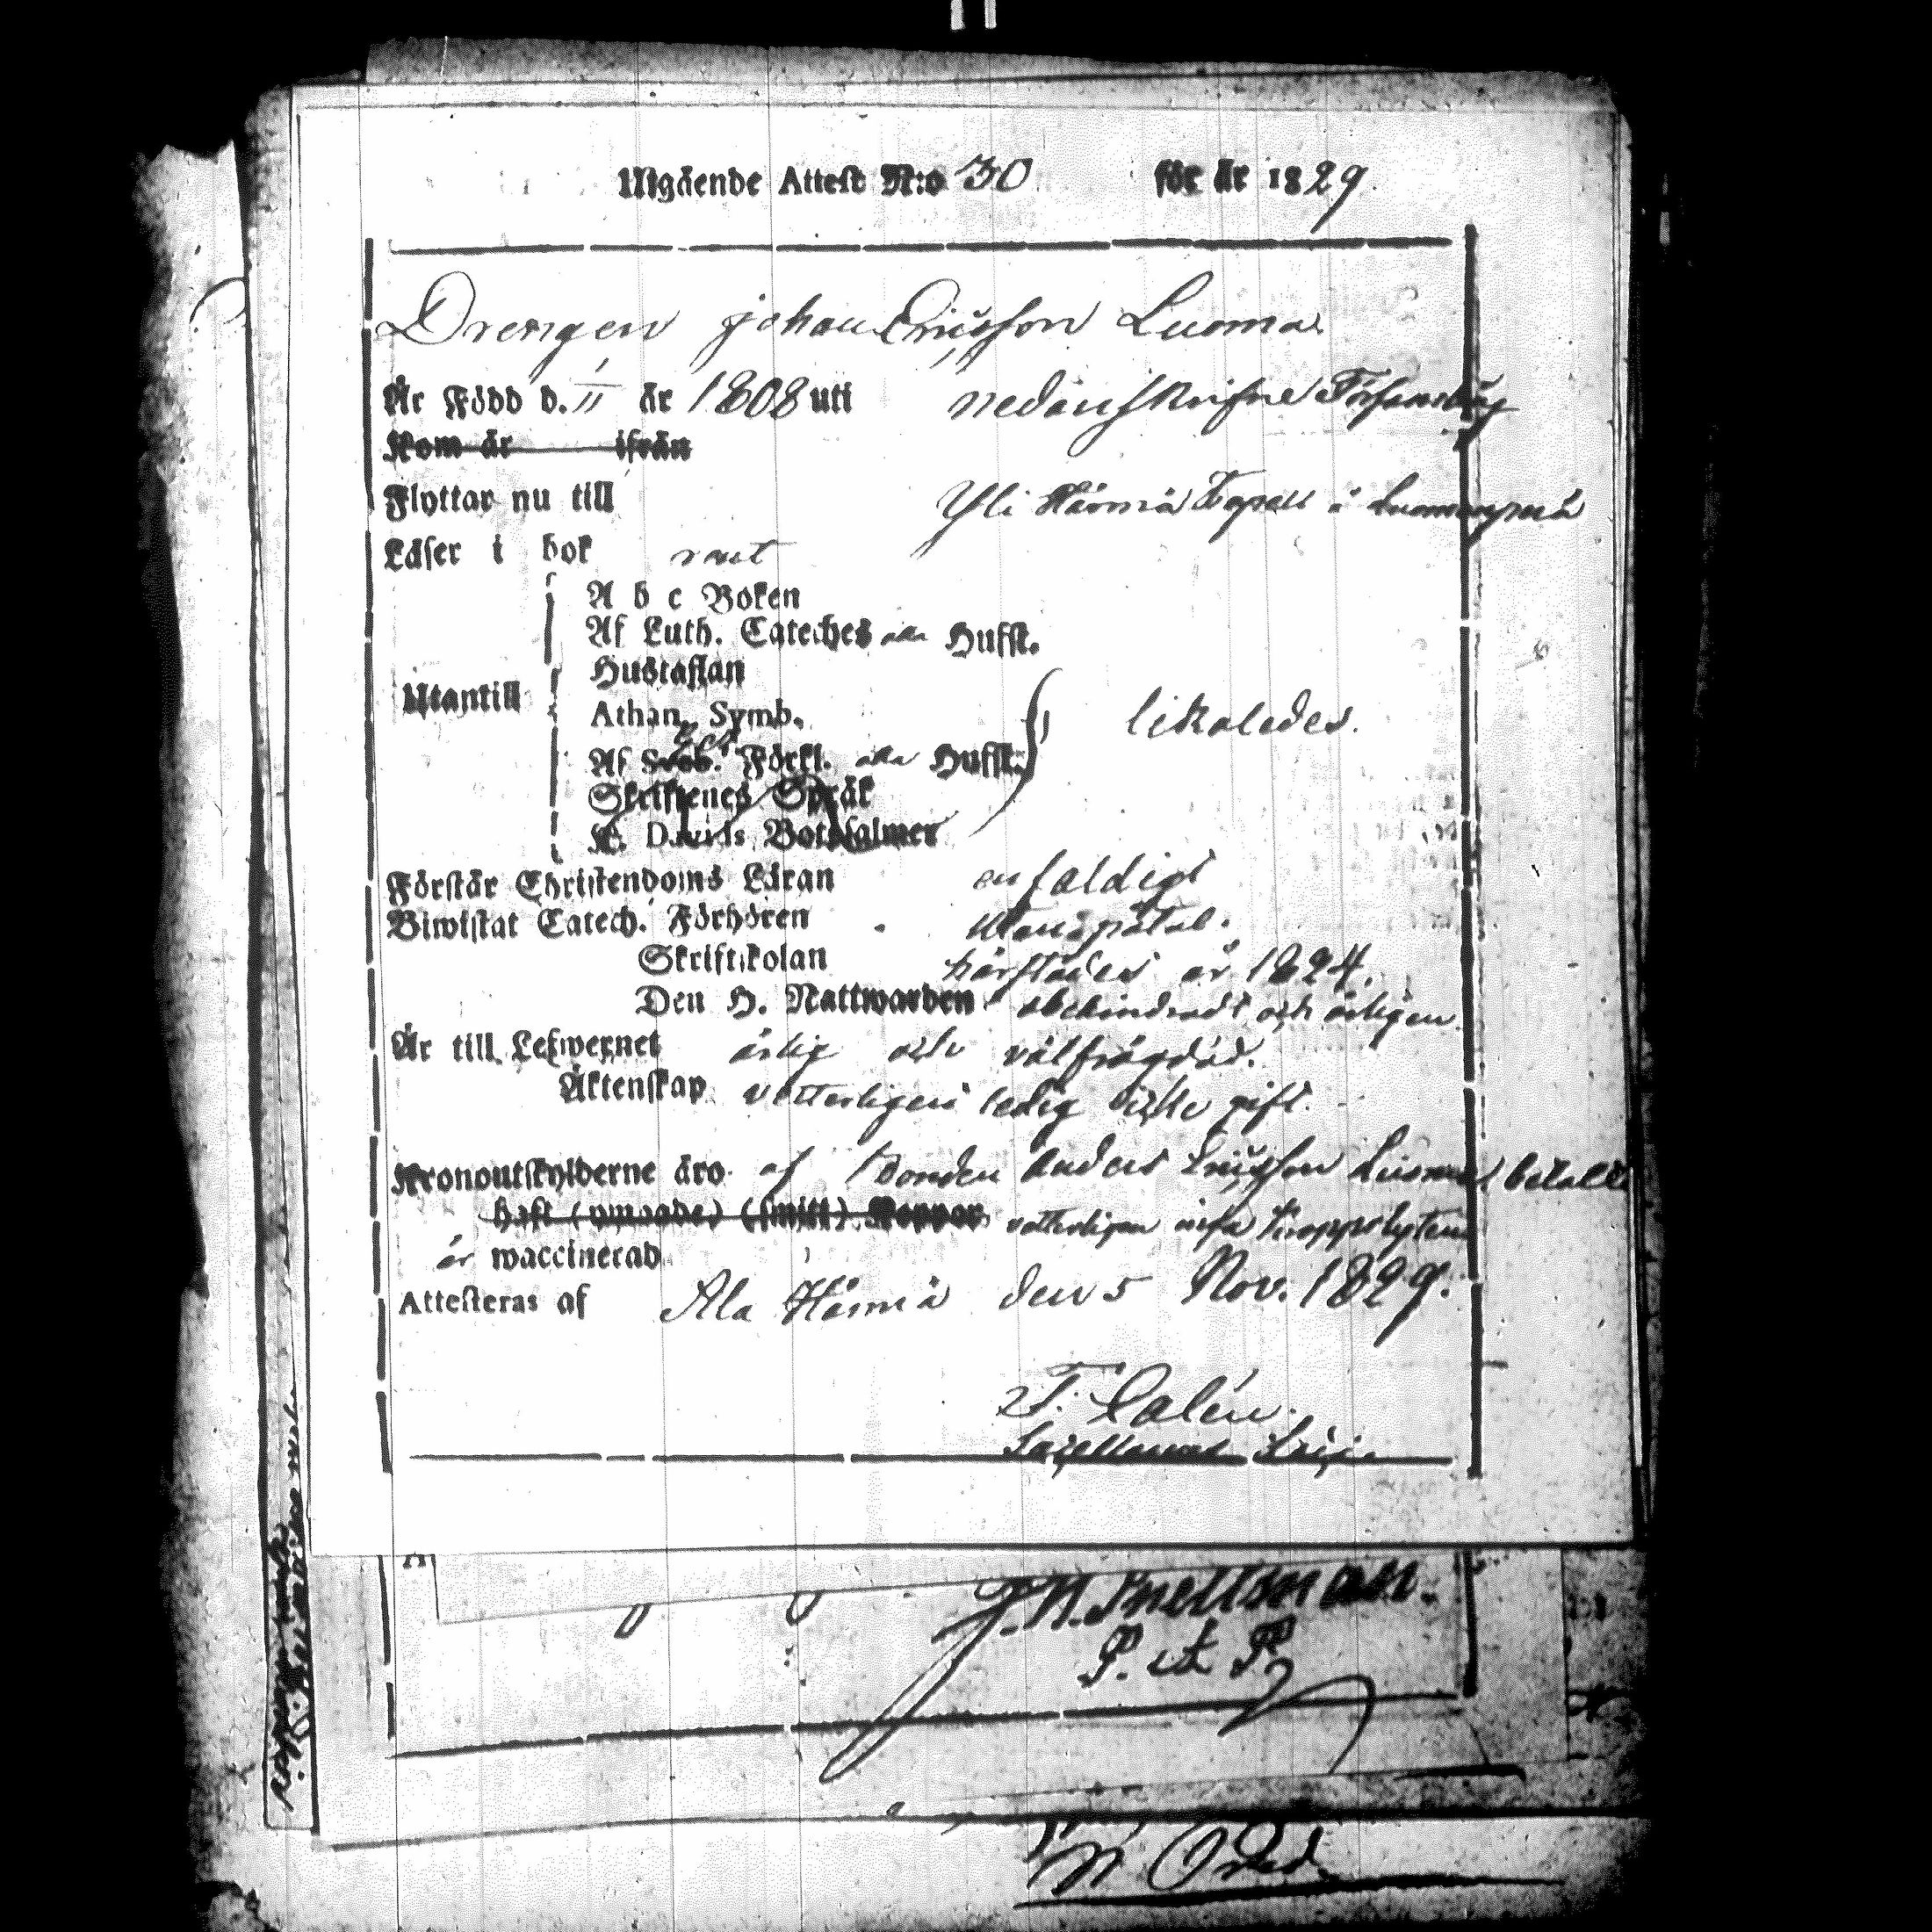 Utgående Attest N:o 30 för år 1829.
Drengen Johan Ericsson Luoma
Är Född d. 1/11 år 1808 uti nedanskrifne Församling
Kom år ifrån
Flyttar nu till Yli Härmä Capell i
Läser i bok rent
A b c Boken
Af Luth. Cateches alla Hufst.
Hustaflan
Utantill
Athan. Symb. likaledes.
Af Förkl. alla Hufst.
Skriftenes Språk
K. Davids Botpsalmer
Förstår Christendoms Läran enfaldigt
Biwistat Catech. Förhören utan påtal.
Skriftskolan härstädes år 1824.
Den H. Nattwarden obehindradt och årligen.
Är till Lefwernet ärlig och välfrägdad.
Äktenskap vetterligen ledig icke gift.
Kronoutskylderne äro af Bonden Anders Ericsson Luoma betalde
haft (ympade) (smitt) Koppor vetterligen inga kroppslyten
är waccinerad
Attesteras af Ala Härmä den 5 Nov. 1829.
F. Calén.
J. N. Snellman.
P. et P.